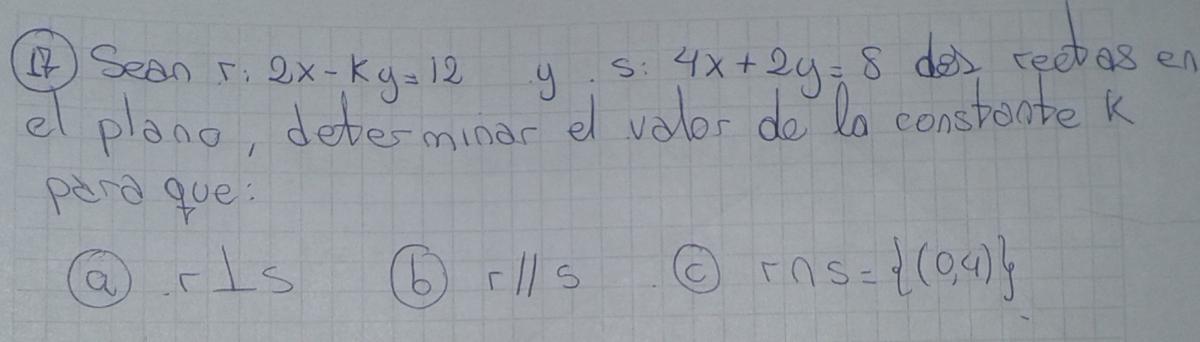 17 Sean r: 2x-ky=12 y s: 4x+2y=8 dos rectas en
el plano, determinar el valor de la constante k
para que:
a r⊥s b r//s c r∩s={(0,4)}